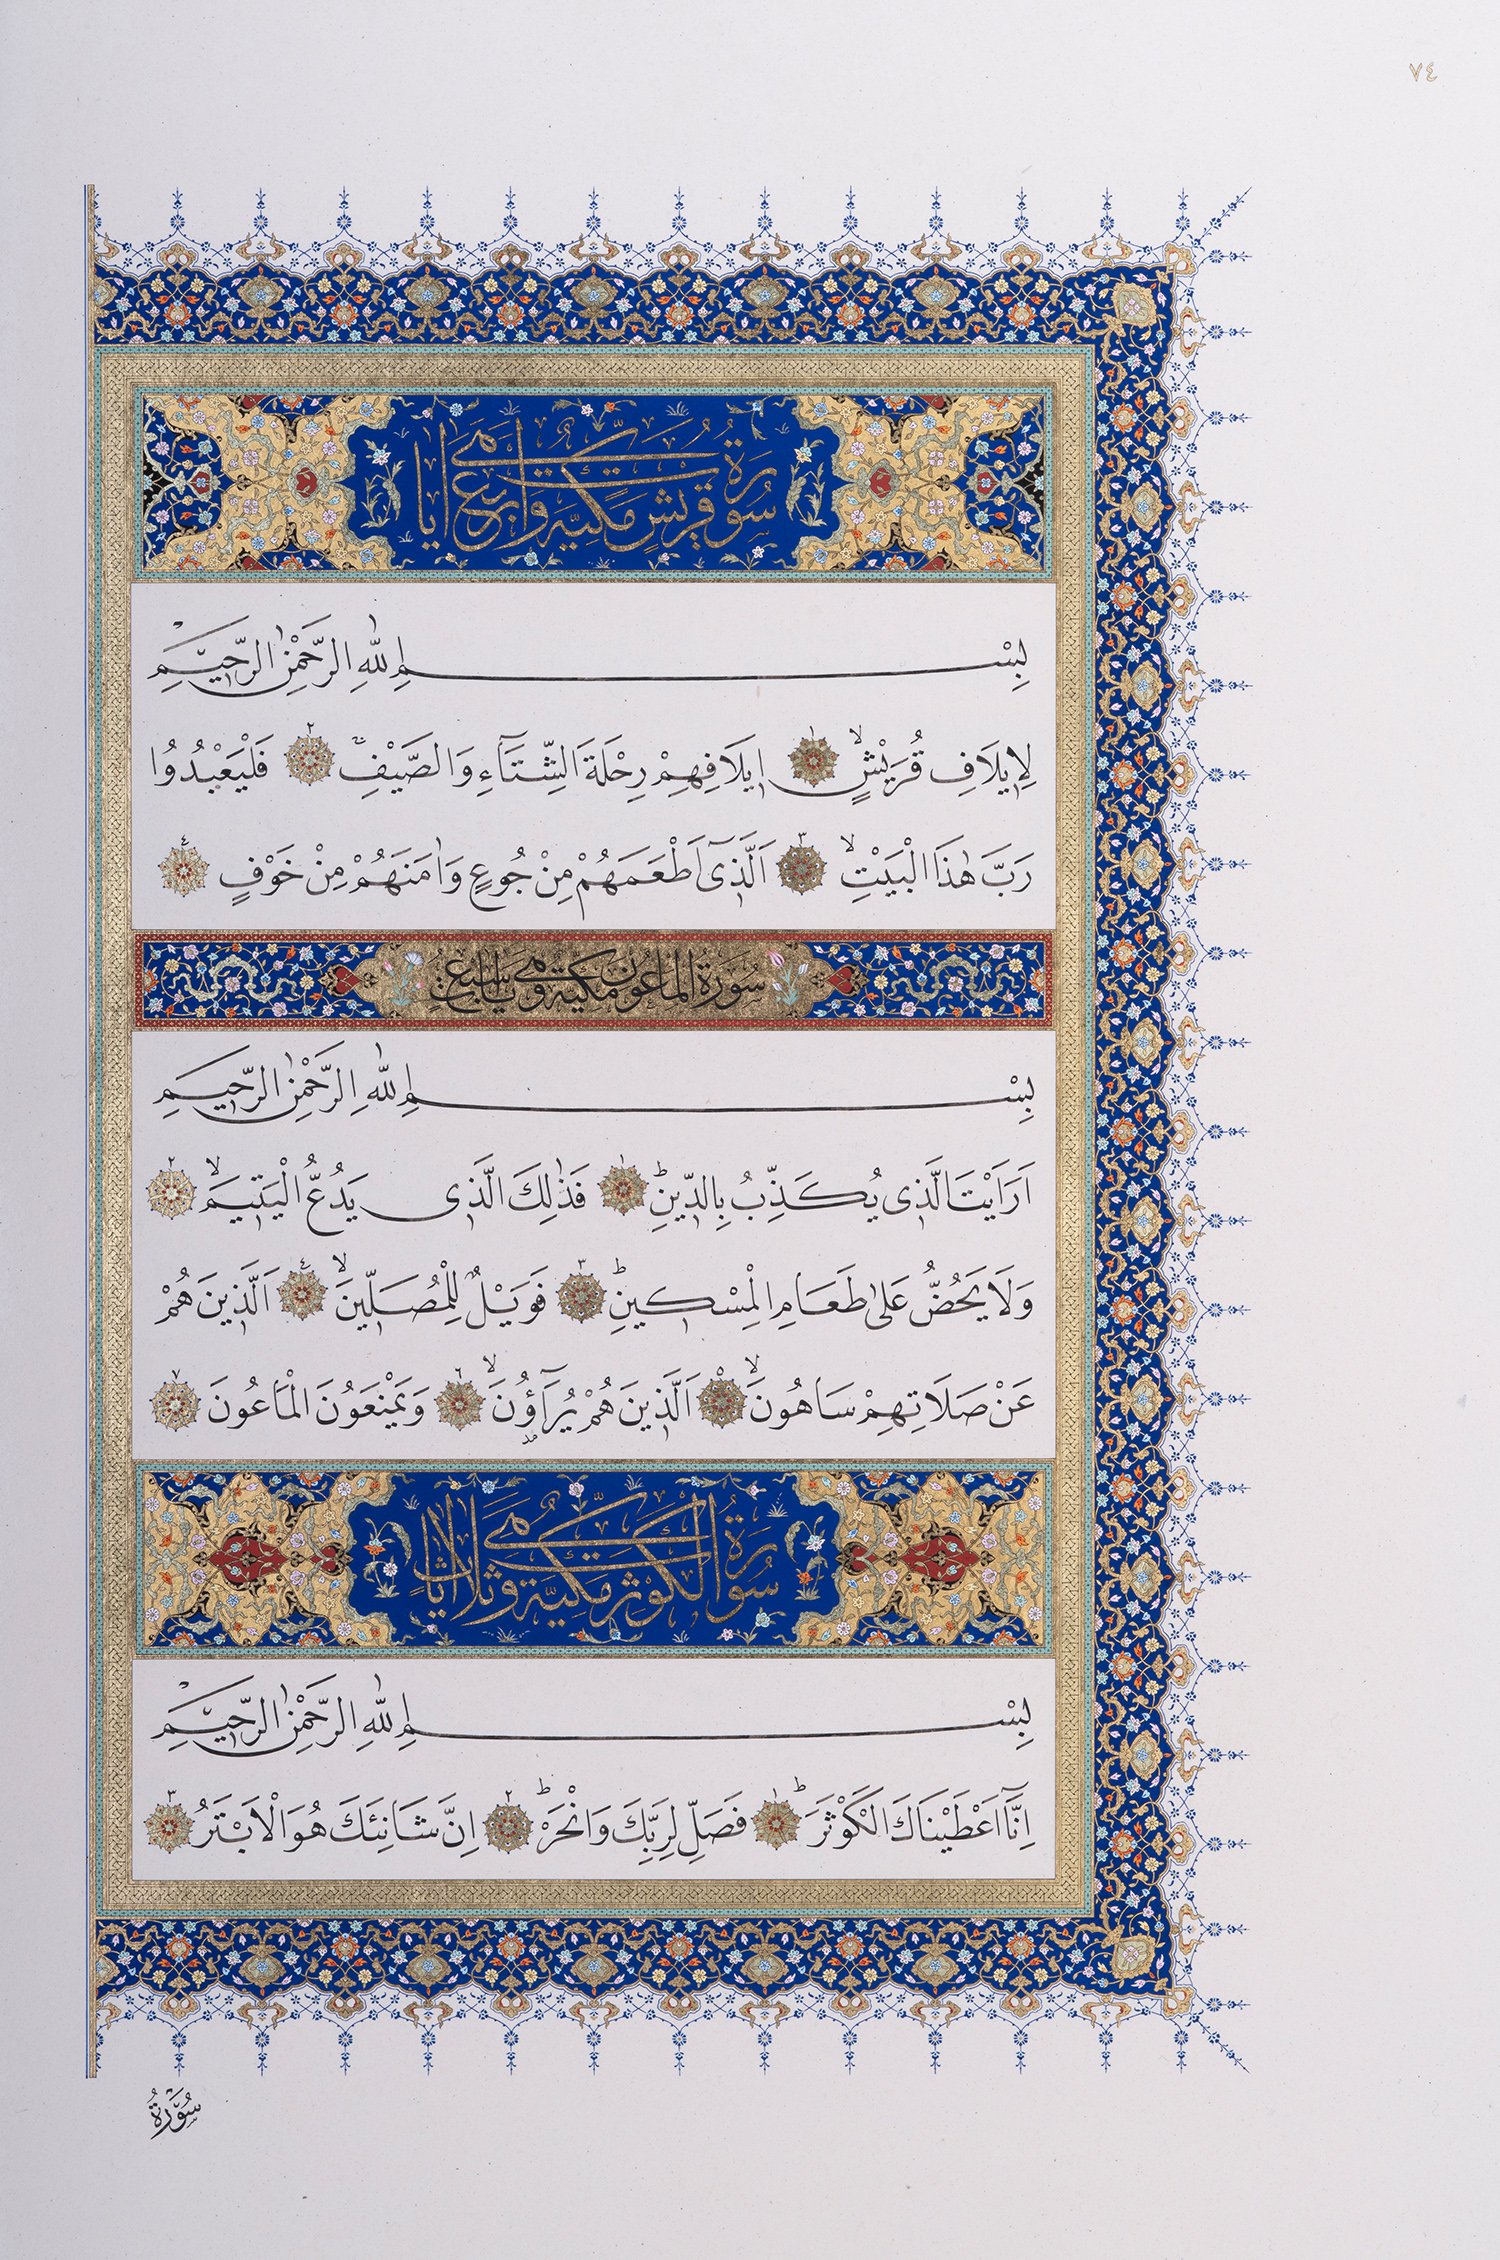 ٧٤
سورة قريش مكية وهى اربع ايات
بِسْمِ اللّٰهِ الرَّحْمٰنِ الرَّحِيمِ
لِاِيلَافِ قُرَيْشٍ ۙ ١ اِيلَافِهِمْ رِحْلَةَ الشِّتَٓاءِ وَالصَّيْفِ ۚ ٢ فَلْيَعْبُدُوا
رَبَّ هٰذَا الْبَيْتِ ۙ ٣ اَلَّذ۪ٓى اَطْعَمَهُمْ مِنْ جُوعٍ وَاٰمَنَهُمْ مِنْ خَوْفٍ ٤
سورة الماعون مكية وهى سبع ايات
بِسْمِ اللّٰهِ الرَّحْمٰنِ الرَّحِيمِ
اَرَاَيْتَ الَّذ۪ى يُكَذِّبُ بِالدّ۪ينِ ۜ ١ فَذٰلِكَ الَّذ۪ى يَدُعُّ الْيَت۪يمَ ۙ ٢
وَلَا يَحُضُّ عَلٰى طَعَامِ الْمِسْك۪ينِ ۜ ٣ فَوَيْلٌ لِلْمُصَلّ۪ينَ ۙ ٤ اَلَّذ۪ينَ هُمْ
عَنْ صَلَاتِهِمْ سَاهُونَ ۙ ٥ اَلَّذ۪ينَ هُمْ يُرَٓاؤُ۫نَ ۙ ٦ وَيَمْنَعُونَ الْمَاعُونَ ٧
سورة الكوثر مكية وهى ثلاث ايات
بِسْمِ اللّٰهِ الرَّحْمٰنِ الرَّحِيمِ
اِنَّٓا اَعْطَيْنَاكَ الْكَوْثَرَ ۜ ١ فَصَلِّ لِرَبِّكَ وَانْحَرْ ۜ ٢ اِنَّ شَانِئَكَ هُوَ الْاَبْتَرُ ٣
سُورَةُ